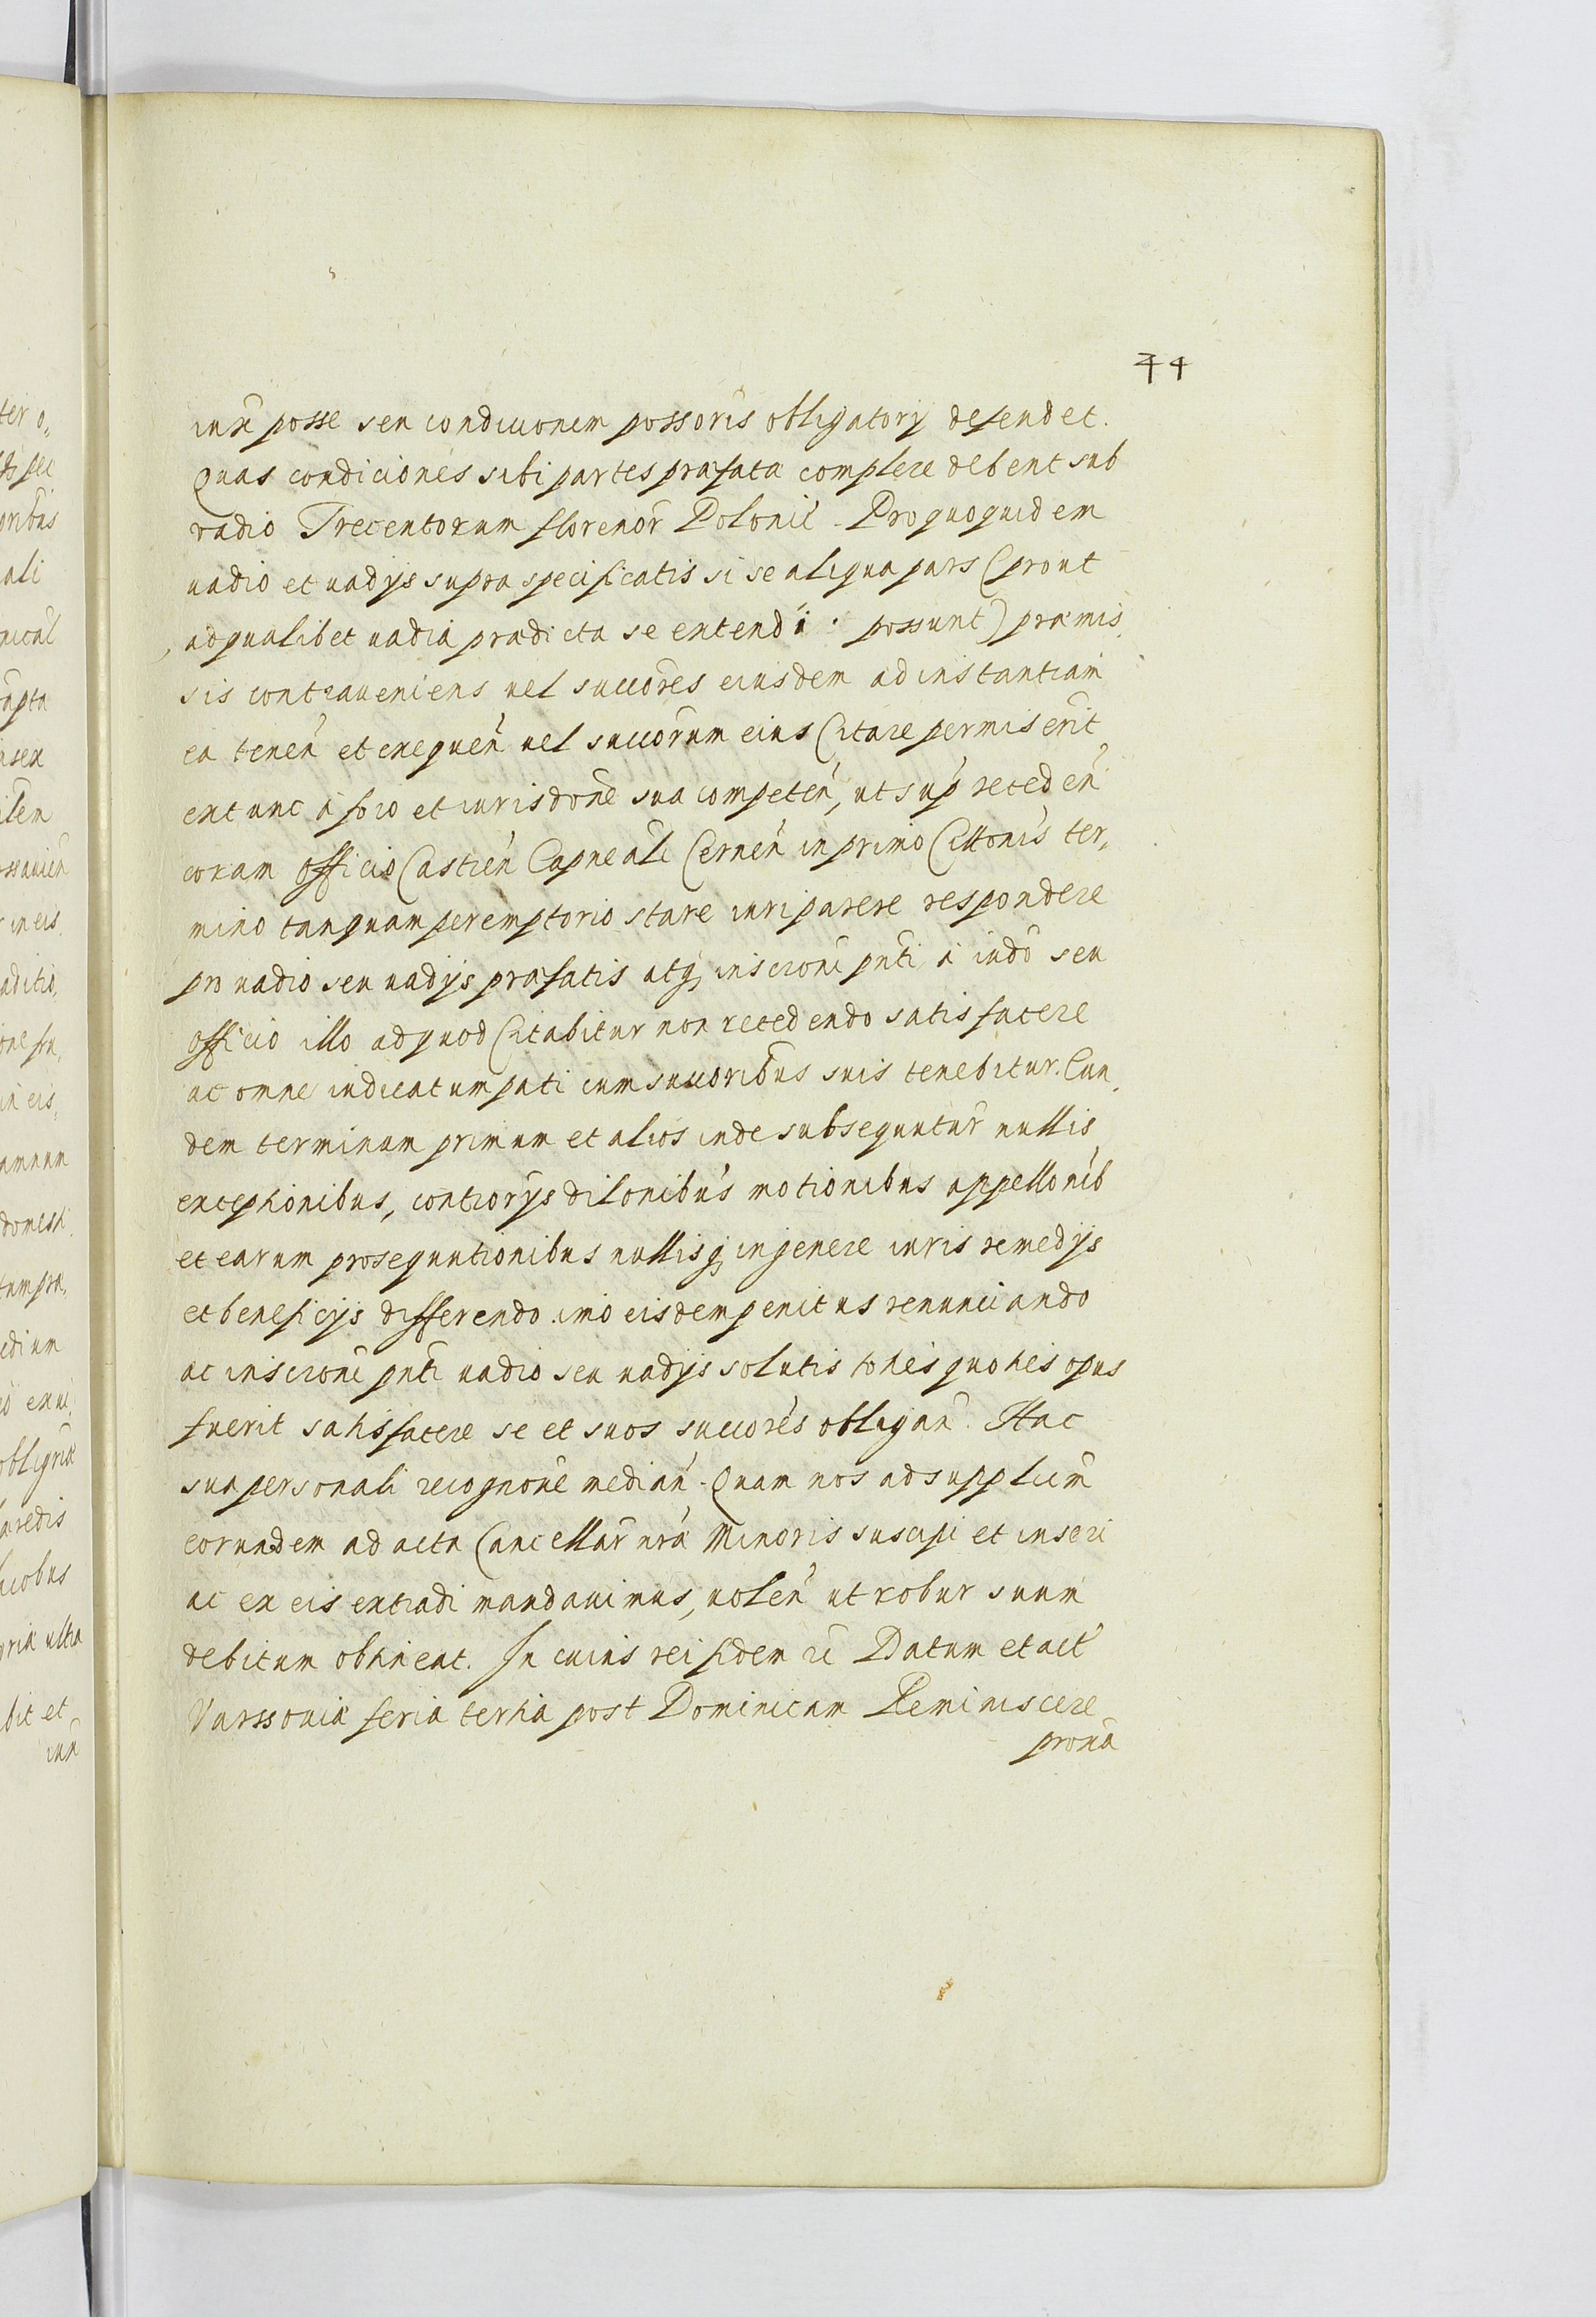 44
iux̃ posse seu condicionem possoris̃ obligatorij defendet.
Quas condicionés sibi partes præfatæ complere debent sub
vadio Trecentorum florenor̃ Polonic̃ - Pro quoquidem
uadio et uadijs supra specificatis si se aliqua pars (prout
ad qualibet uadia prædicta se extendi possunt) præmis,
sis contraueniens uel succores̃ eiusdem ad instantiam
ea tenen̄ et exequen̄ uel succorum̃ eius Citare permiserit
extunc á foro et iurisdonē sua competen̄, ut sup̄ receden̄
coram officio Castren̄ Capneali Cernen̄ in primo Cittonis̄ ter,
mino tanquam peremptorio stare iuri parere respondere
pro uadio seu uadijs præfatis atq₃ inscronē pn̄ti à iudō seu
officio illo ad quod Citabitur non recedendo satisfacere
ac omne iudicatum pati cum succoribus̃ suis tenebitur. Eun,
dem terminum primum et alios inde subsequutur̄ nullis
exceptionibus, controrijs dilonibus̃ motionibus appellonib̃
et earum prosequutionibus nullisq₃ in genere iuris remedijs
et beneficijs differendo imo eisdem penitus renunciando
ac inscronē pn̄ti uadio seu uadijs solutis toties quoties opus
fuerit satisfacere se et suos succores̃ obligan̄. Hac
sua personali recognonē median̄. Quam nos ad supplicm̃
eorundem ad acta Cancellar̄ nr̄æ Minoris suscipi et inseri
ac ex eis extradi mandauimus, uolen̄ ut robur suum
debitum obtineat. In cuius rei fidem ꝛc̄ Datum et act̄
Varssouiæ feria tertia post Dominicam Reminiscere
proxa̅
ter o,,
pribus
ali
ilem
in eis,
domest
edium
aredis
acobus
ultra
bit et
iux̃